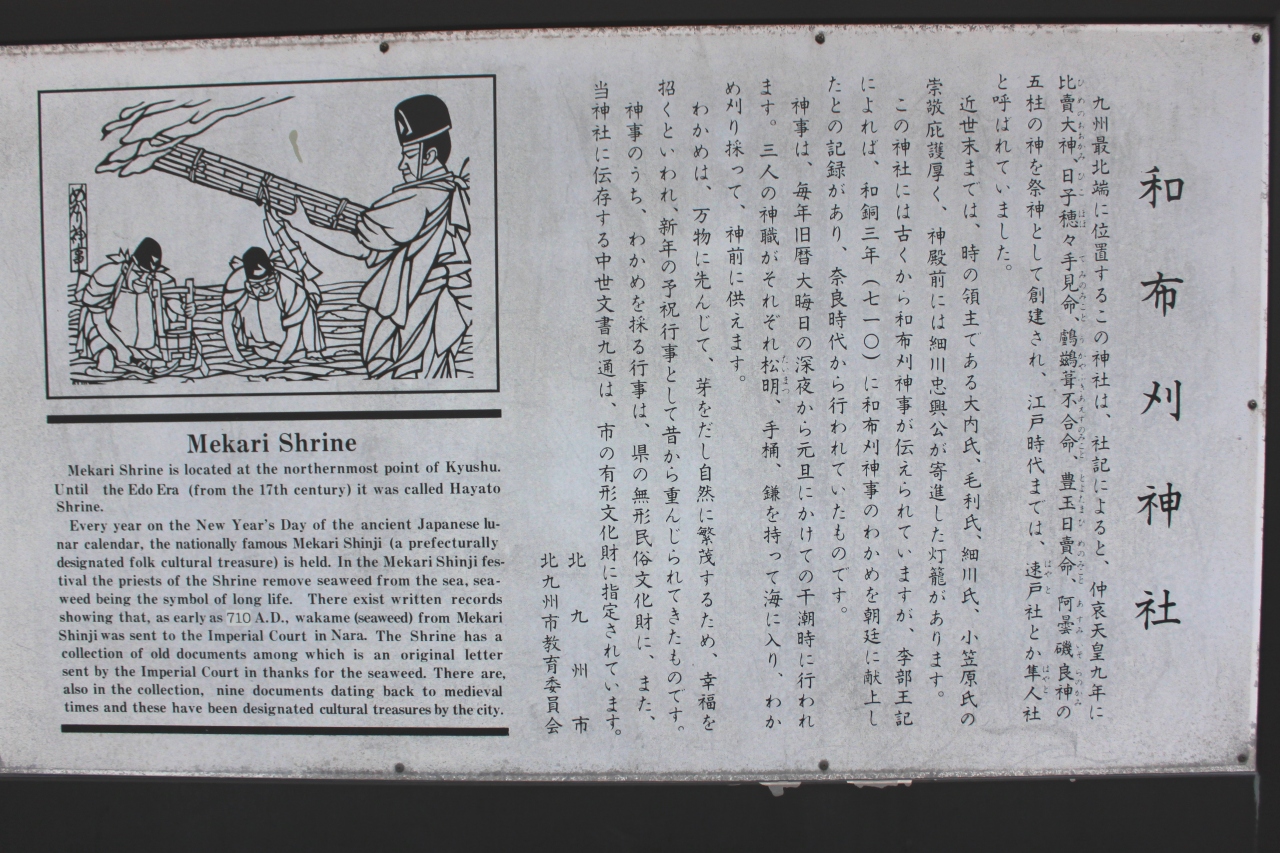 和布刈神社
九州最北端に位置するこの神社は、社記によると、仲哀天皇九年に
比賣大神、日子穂々手見命、鸕鷀葺不合命、豊玉日賣命、阿曇磯良神の
五柱の神を祭神として創建され、江戸時代までは、速戸社とか隼人社
と呼ばれていました。
近世末までは、時の領主である大内氏、毛利氏、細川氏、小笠原氏の
崇敬庇護厚く、神殿前には細川忠興公が寄進した灯籠があります。
この神社には古くから和布刈神事が伝えられていますが、李部王記
によれば、和銅三年（七一〇）に和布刈神事のわかめを朝廷に献上し
たとの記録があり、奈良時代から行われていたものです。
神事は、毎年旧暦大晦日の深夜から元旦にかけての干潮時に行われ
ます。三人の神職がそれぞれ松明、手桶、鎌を持って海に入り、わか
め刈り採って、神前に供えます。
わかめは、万物に先んじて、芽をだし自然に繁茂するため、幸福を
招くといわれ、新年の予祝行事として昔から重んじられてきたものです。
神事のうち、わかめを採る行事は、県の無形民俗文化財に、また、
当神社に伝存する中世文書九通は、市の有形文化財に指定されています。
北九州市
北九州市教育委員会
めかり神事
Mekari Shrine
Mekari Shrine is located at the northernmost point of Kyushu.
Until the Edo Era (from the 17th century) it was called Hayato
Shrine.
Every year on the New Year's Day of the ancient Japanese lu-
nar calendar, the nationally famous Mekari Shinji (a prefecturally
designated folk cultural treasure) is held. In the Mekari Shinji fes-
tival the priests of the Shrine remove seaweed from the sea, sea-
weed being the symbol of long life. There exist written records
showing that, as early as 710 A.D., wakame (seaweed) from Mekari
Shinji was sent to the Imperial Court in Nara. The Shrine has a
collection of old documents among which is an original letter
sent by the Imperial Court in thanks for the seaweed. There are,
also in the collection, nine documents dating back to medieval
times and these have been designated cultural treasures by the city.